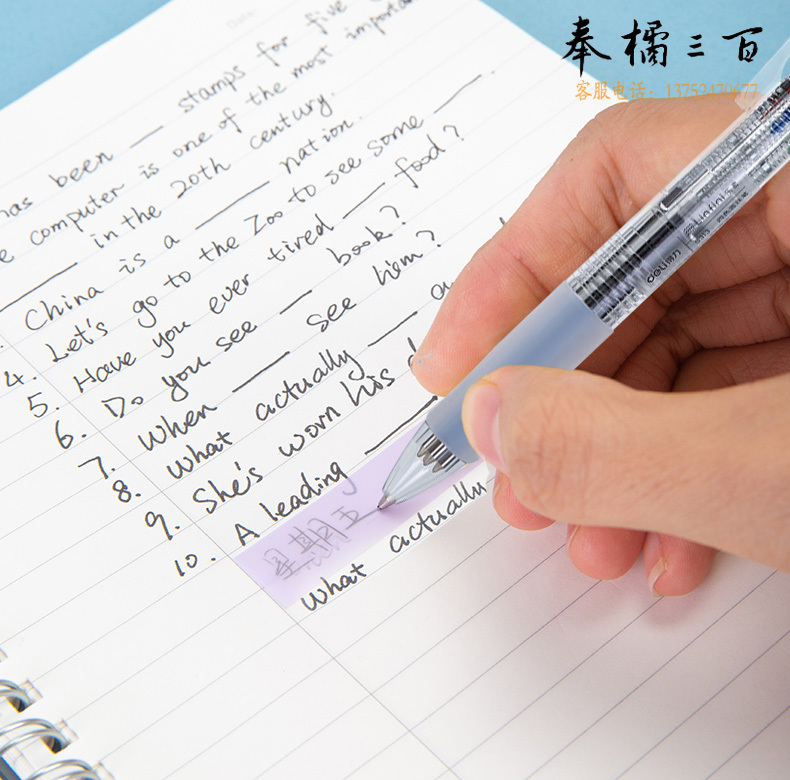 奉橘三百
客服电话：13753470677
has been ___ stamps for five
computer is one of the most important
___ in the 20th century.
China is a ___ nation.
4. Let's go to the Zoo to see some ___.
5. Have you ever tired ___ food?
6. Do you see ___ book?
7. When ___ see him?
8. What actually ___
9. She's worn his
10. A leading ___
星期五
What actually
deli得力